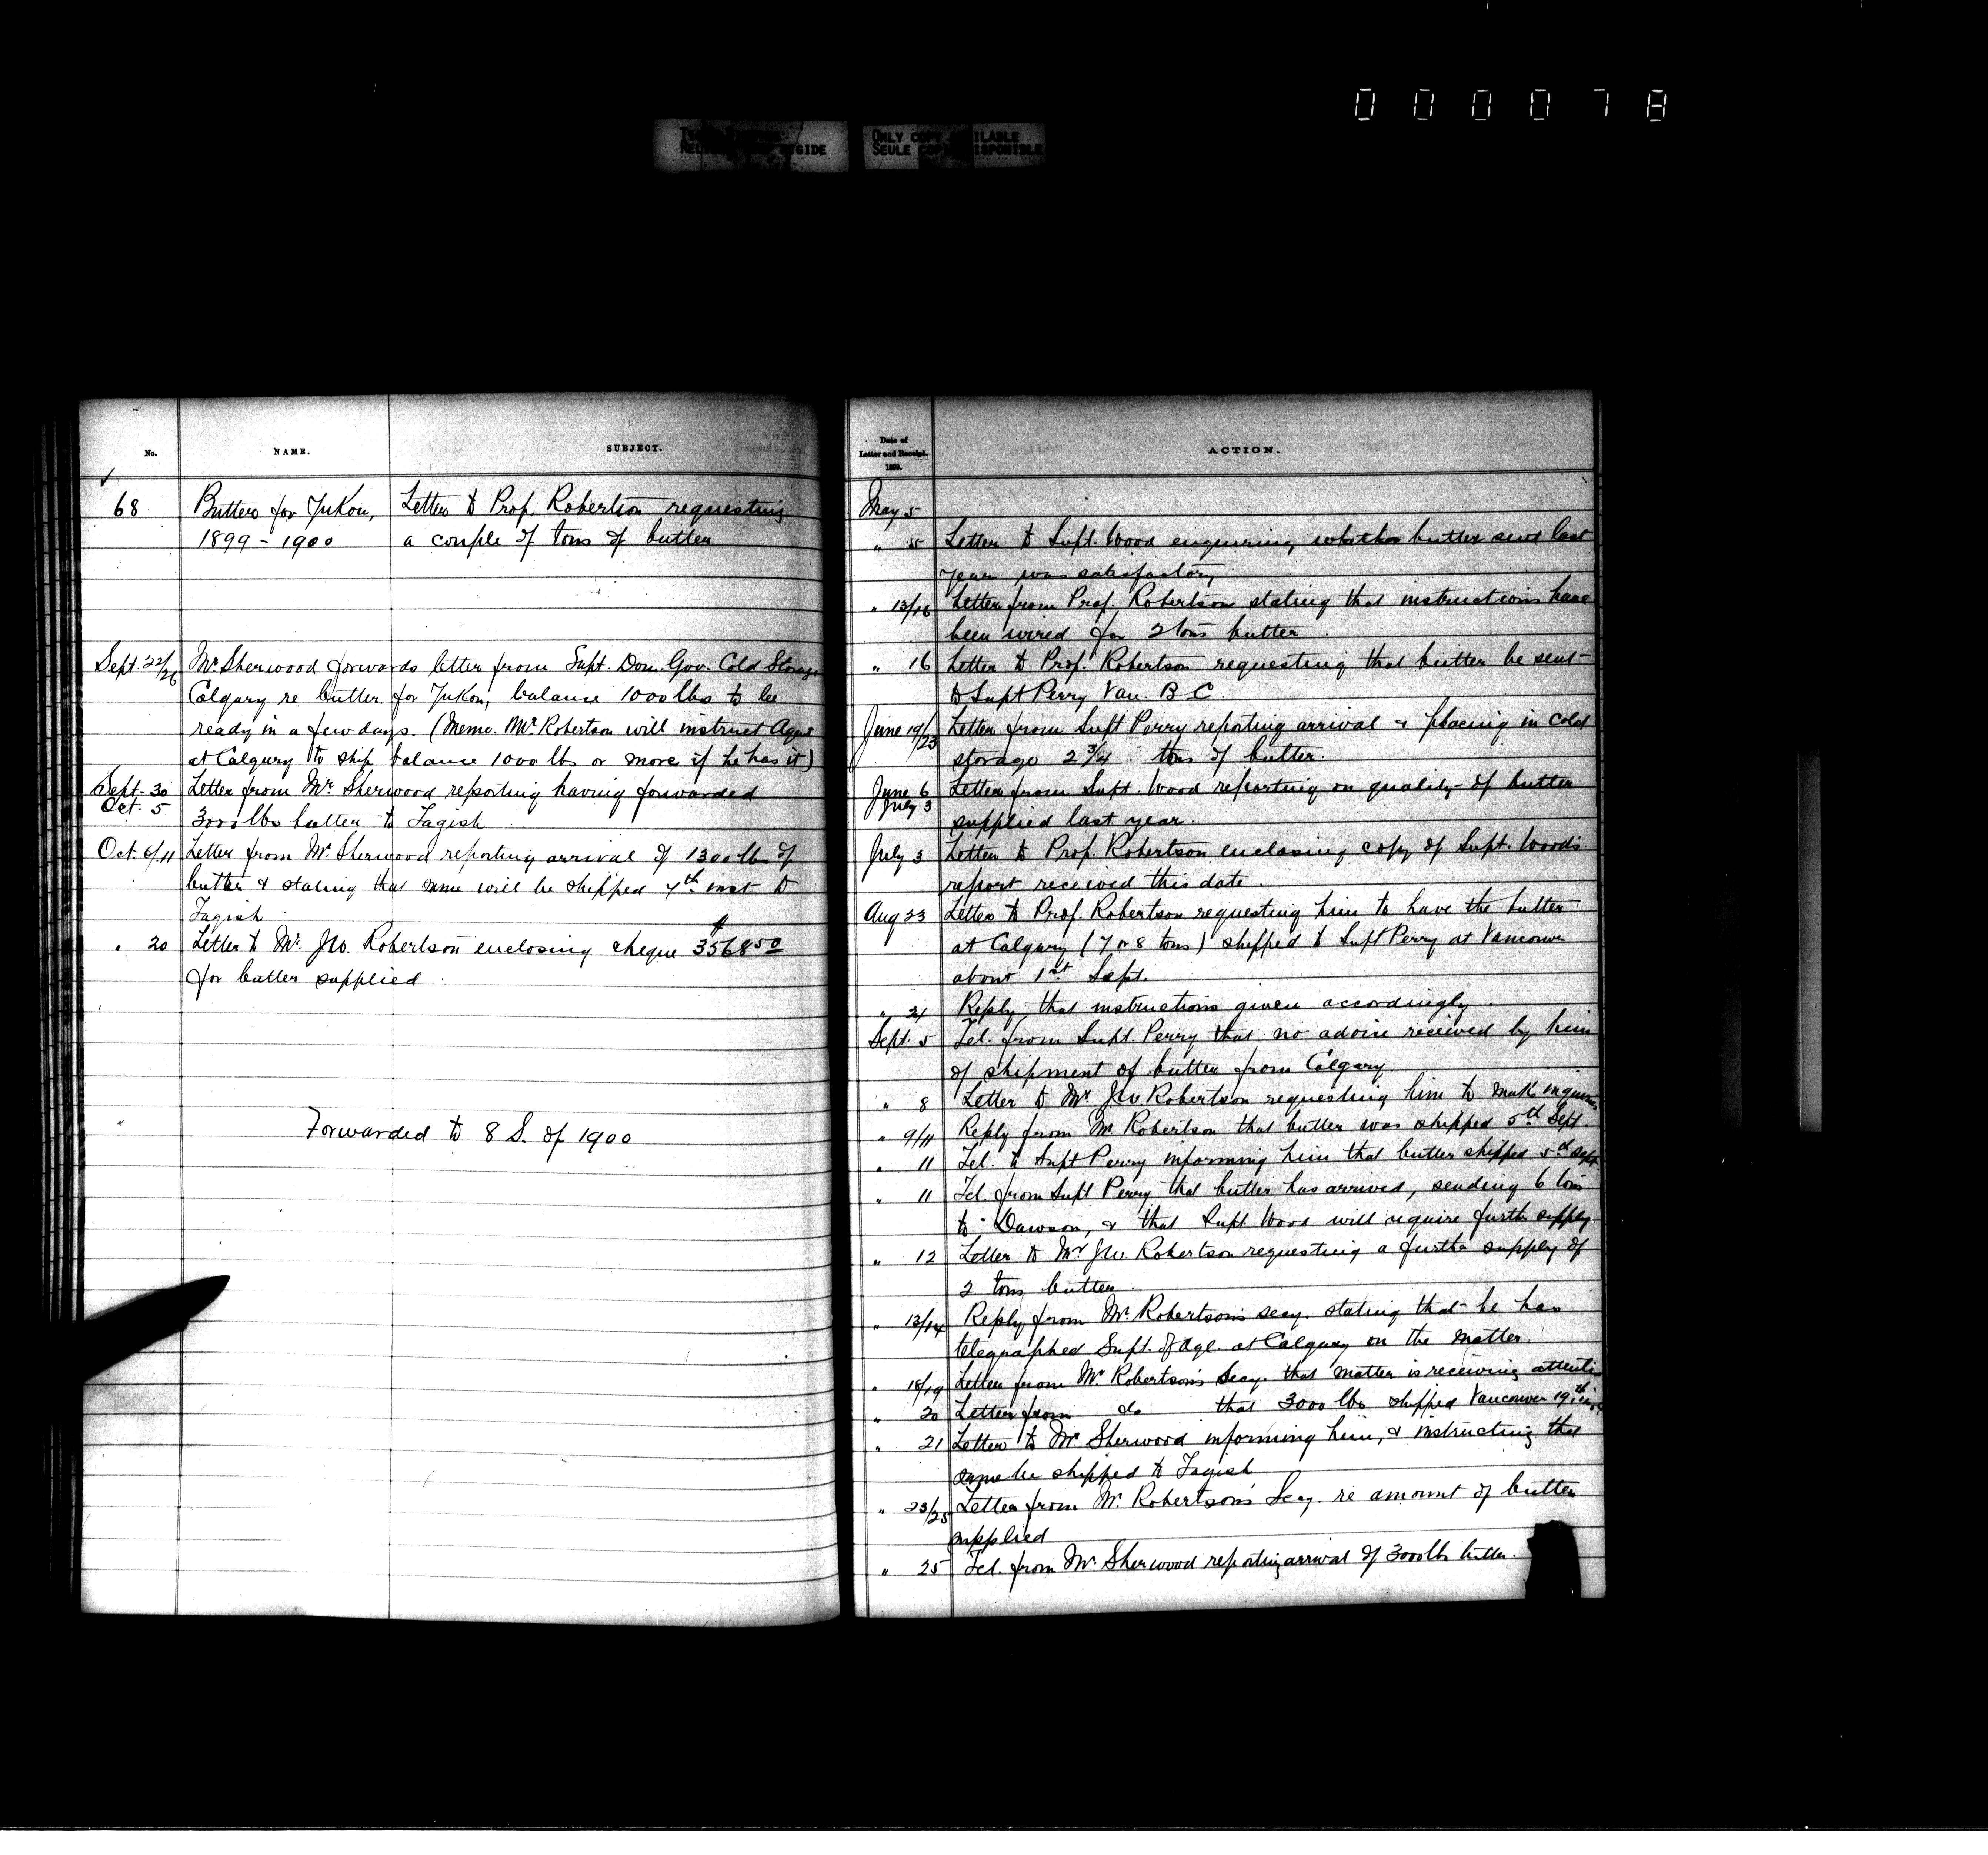 000078
ONLY COPY AVAILABLE
SEULE COPIE DISPONIBLE
No. NAME. SUBJECT.
68 Butter for Yukon, Letter to Prof. Robertson requesting
1899 - 1900 a couple of tons of butter
Sept. 22/26 Mr. Sherwood forwards letter from Supt. Dom. Gov. Cold Storage
Calgary re butter for Yukon, balance 1000 lbs to be
ready in a few days. (Memo. Mr. Robertson will instruct Agent
at Calgary to ship balance 1000 lbs or more if he has it)
Sept. 30 Letter from Mr. Sherwood reporting having forwarded
Oct. 5 3000 lbs butter to Tagish
Oct. 6/11 Letter from Mr. Sherwood reporting arrival of 1300 lbs of
butter & stating that same will be shipped 7th inst to
Tagish
" 20 Letter to Mr. Jw. Robertson enclosing cheque $3568.50
for butter supplied
Forwarded to 8 S. of 1900
Date of
Letter and Receipt.
1899.
ACTION.
May 5
" 15 Letter to Supt. Wood enquiring whether butter sent last
year was satisfactory
" 13/16 Letter from Prof. Robertson stating that instructions have
been wired for 2 tons butter.
" 16 Letter to Prof. Robertson requesting that butter be sent
to Supt Perry Van. B C.
June 19/23 Letter from Supt Perry reporting arrival & placing in cold
storage 2 3/4 tons of butter.
June 6 Letter from Supt. Wood reporting on quality of butter
July 3 supplied last year.
July 3 Letter to Prof. Robertson enclosing copy of Supt. Wood's
report received this date.
Aug 23 Letter to Prof. Robertson requesting him to have the butter
at Calgary (7 or 8 tons) shipped to Supt Perry at Vancouver
about 1st Sept.
" 24 Reply, that instructions given accordingly
Sept. 5 Tel. from Supt. Perry that no advice received by him
of shipment of butter from Calgary
" 8 Letter to Mr Jw Robertson requesting him to make inquiries
" 9/11 Reply from Mr Robertson that butter was shipped 5th Sept.
" 11 Tel. to Supt Perry informing him that butter shipped 5th Sept
" 11 Tel. from Supt Perry that butter has arrived, sending 6 tons
to Dawson, & that Supt. Wood will require further supply
" 12 Letter to Mr Jw. Robertson requesting a further supply of
2 tons butter.
" 13/14 Reply from Mr. Robertson's secy. stating that he has
telegraphed Supt. of Agl. at Calgary on the matter.
" 18/19 Letter from Mr Robertson's Secy. that matter is receiving attenti
" 20 Letter from do that 3000 lbs shipped Vancouver 19th inst
" 21 Letter to Mr Sherwood informing him, & instructing that
same be shipped to Tagish
" 23/25 Letter from Mr. Robertson's Secy. re amount of butter
supplied
" 25 Tel. from Mr. Sherwood reporting arrival of 3000 lbs butter.